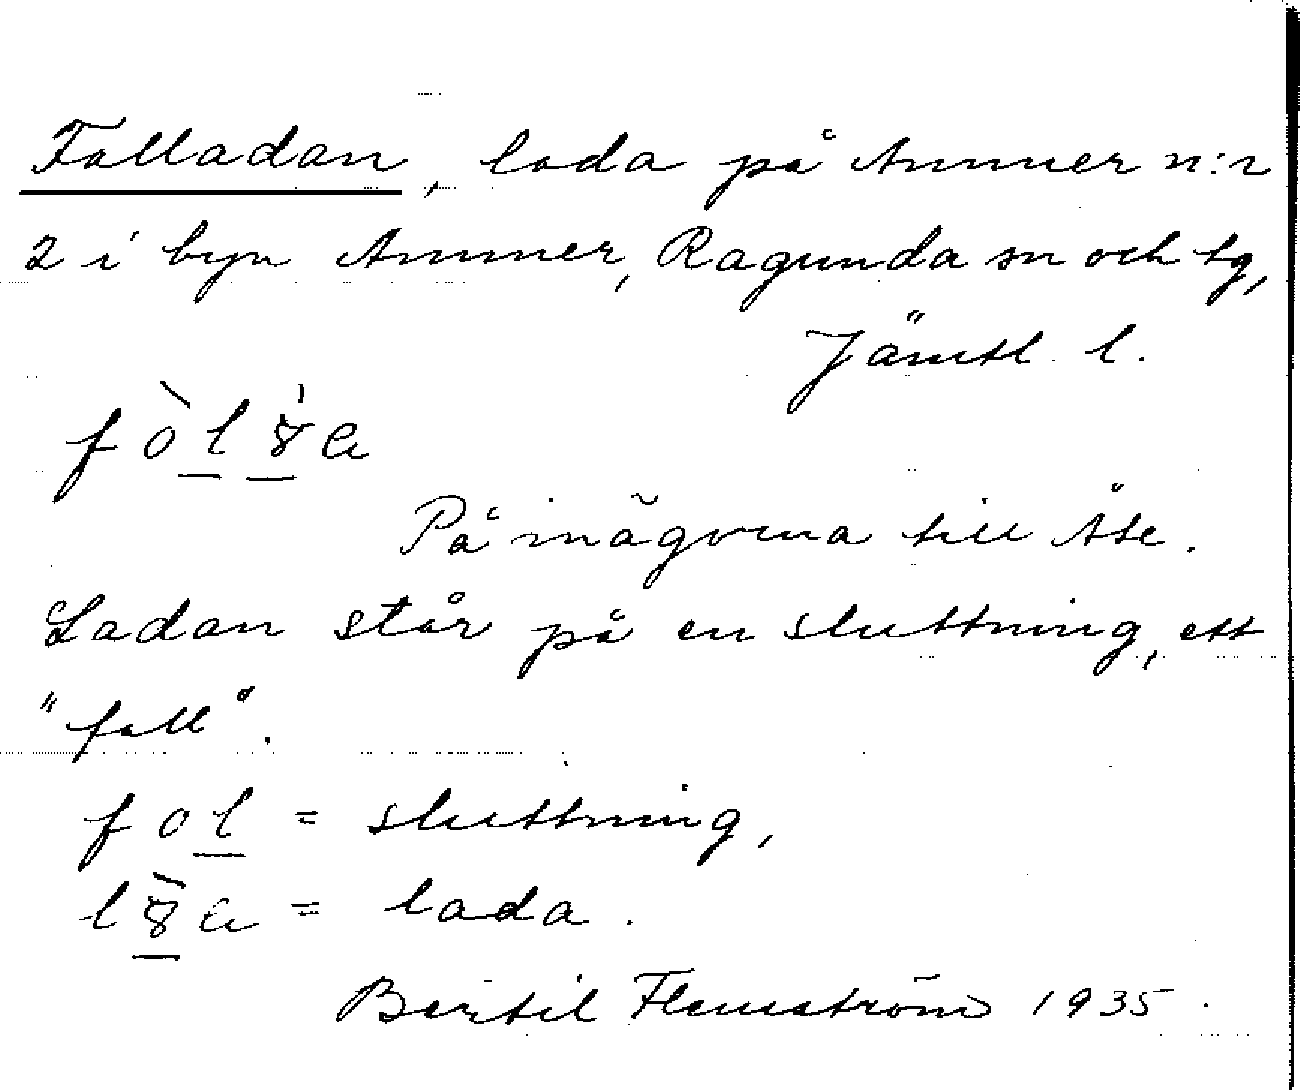 Falladan, lada på Ammer n:r
2 i byn Ammer, Ragunda sn och tg,
Jämtl. l.
På inägorna till Åse.
Ladan står på en sluttning, ett
"fall".
fol = sluttning,
= lada.
Bertil Flemström 1935.